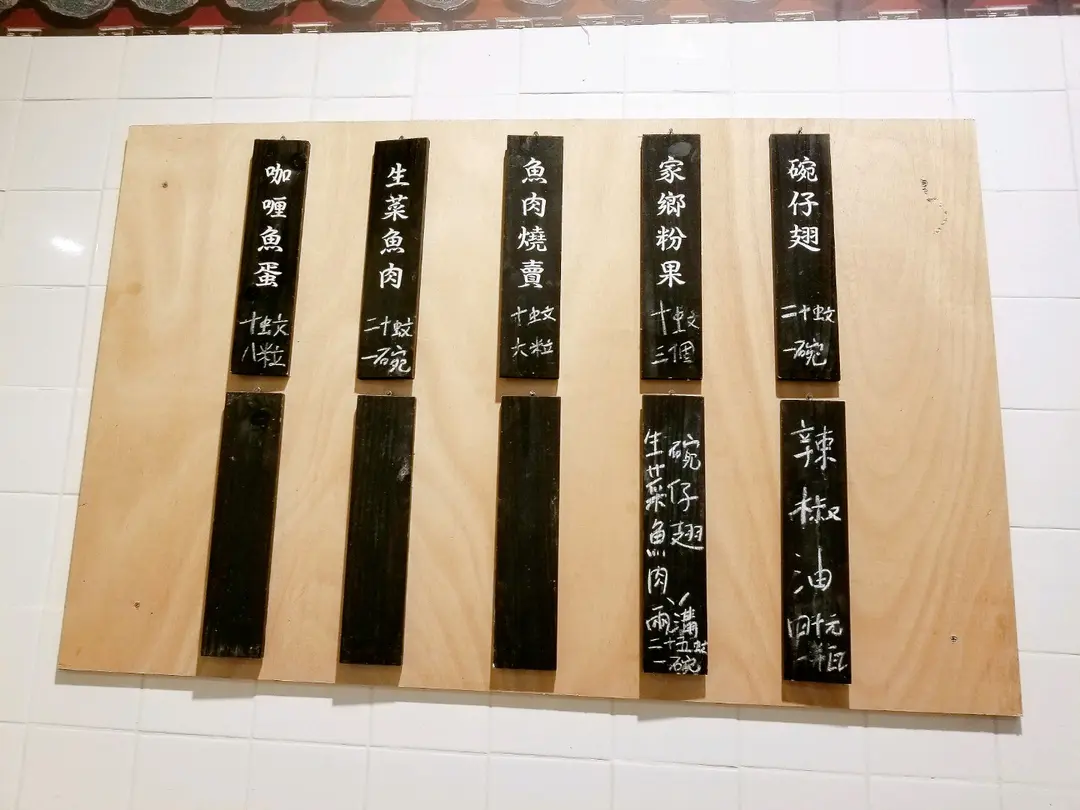 碗仔翅
二十蚊
一碗
家鄉粉果
十蚊
三個
魚肉燒賣
十蚊
六粒
生菜魚肉
二十蚊
一碗
咖喱魚蛋
十蚊
八粒
辣椒油
四十元
一瓶
碗仔翅
生菜魚肉
兩溝
二十五蚊
一碗